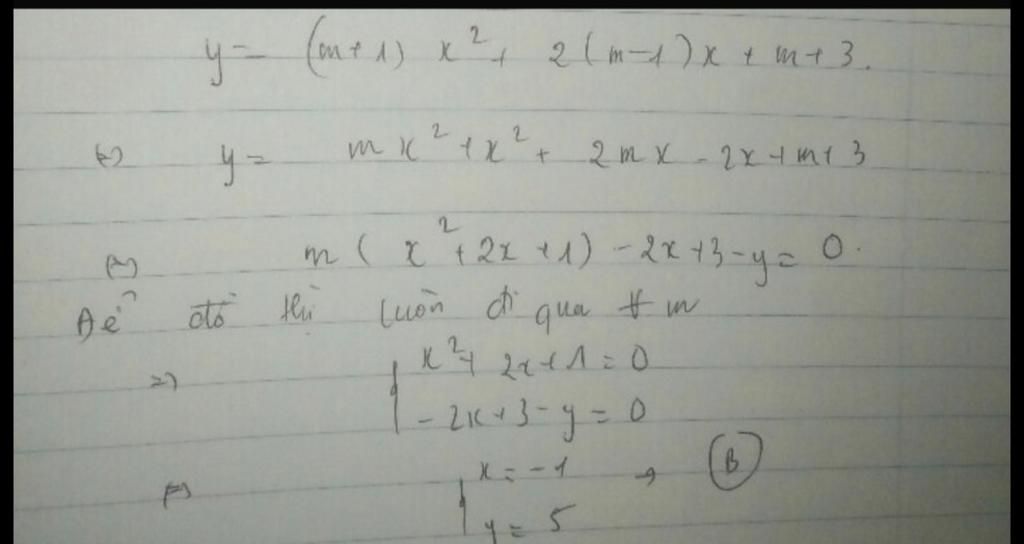 y = (m+1) x² + 2(m-1)x + m+3.
(=) y = mx² + x² + 2mx - 2x + m + 3
(=) m( x² + 2x + 1) - 2x + 3 - y = 0.
Để đồ thị luôn đi qua ∀ m
=> { x² + 2x + 1 = 0
- 2x + 3 - y = 0
(=) { x = -1 → (B)
y = 5